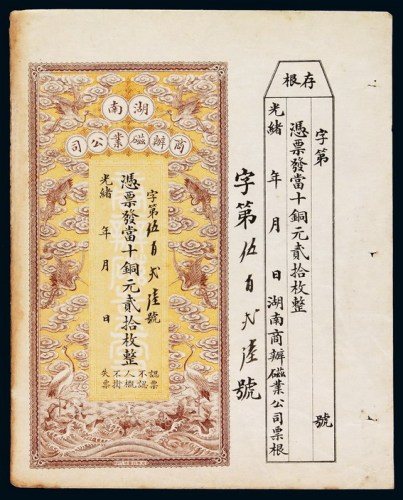 湖南
商辦磁業公司
字第伍百弍陸號
憑票發當十銅元貳拾枚整
光緒 年 月 日
認票不認人概不掛失票
字第伍百弍陸號
存根
字第 號
憑票發當十銅元貳拾枚整
光緒 年 月 日 湖南商辦磁業公司票根